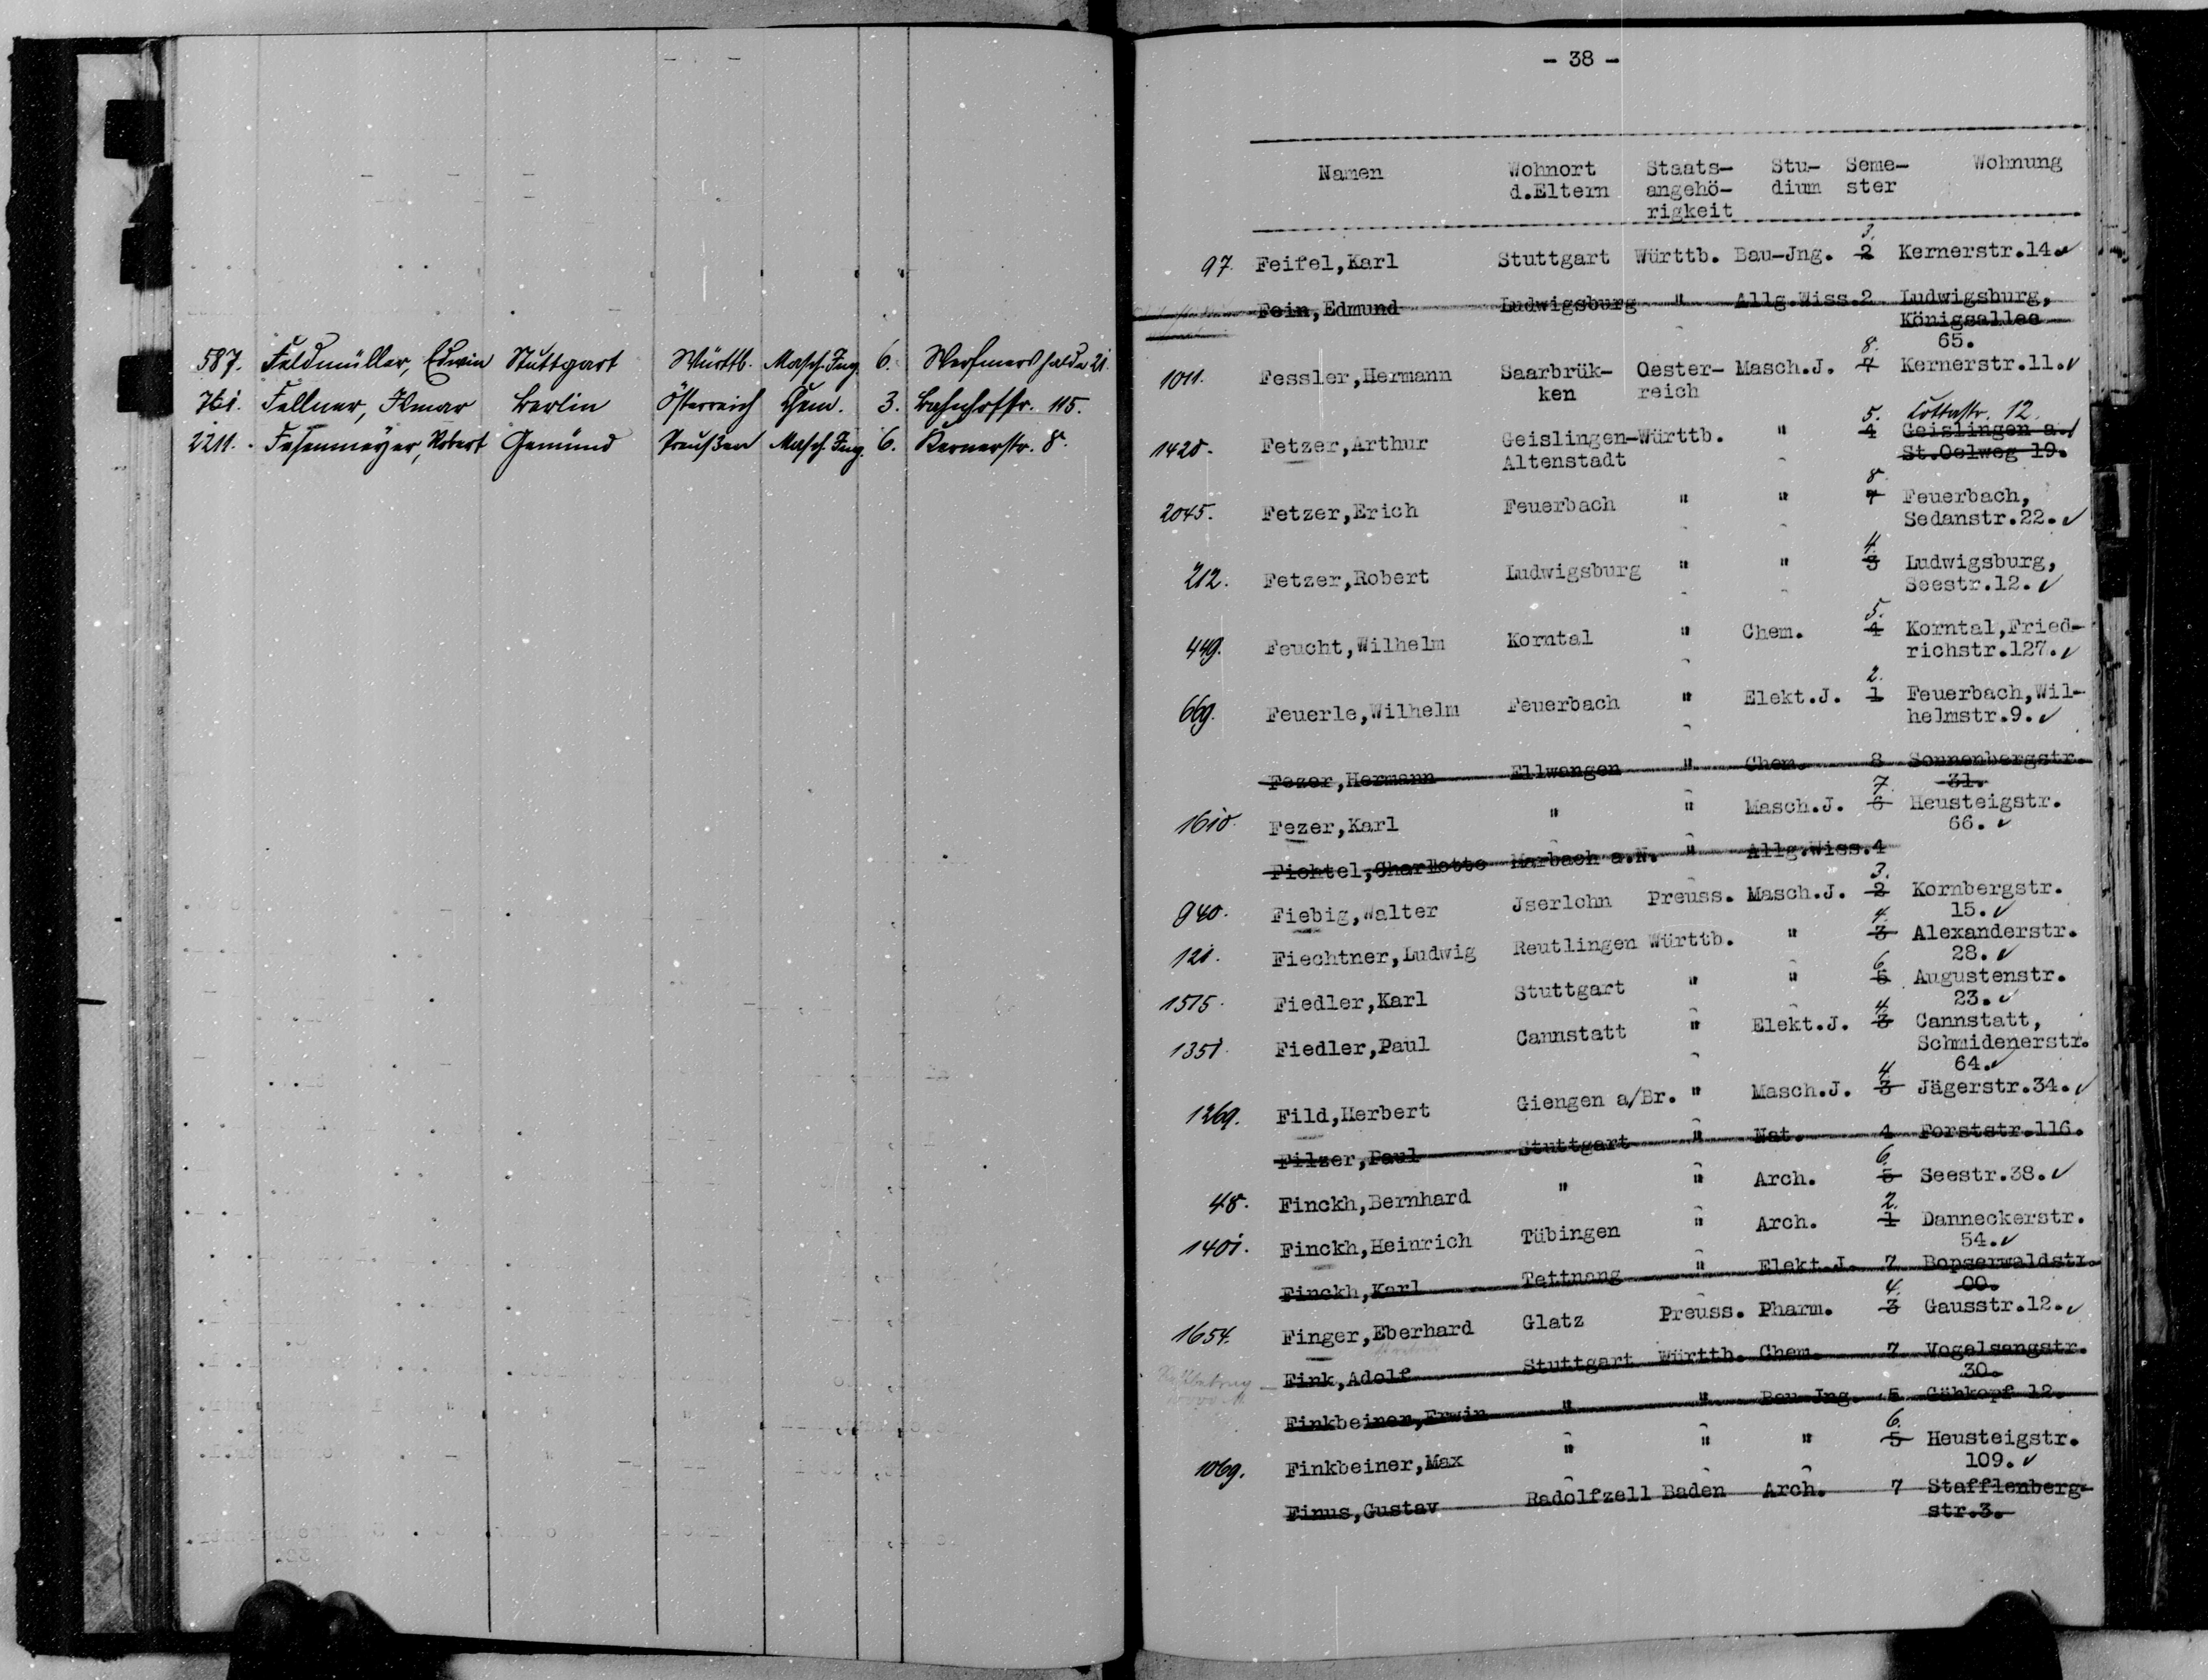 587. Feldmüller, Edwin Stuttgart Württb. Masch. Ing. 6. Werfmershalde 21.
761. Fellner, Ilmar Berlin Österreich Chem. 3. Bahnhofstr. 115.
2211. Fesenmeyer, Robert Gemünd Preußen Masch. Ing. 6. Kernerstr. 8.
- 38 -
Namen Wohnort Staats- Stu- Seme- Wohnung
d.Eltern angehö- dium ster
rigkeit
3.
97. Feifel,Karl Stuttgart Württb. Bau-Jng. 2 Kernerstr.14.✓
Fein,Edmund Ludwigsburg " Allg.Wiss.2 Ludwigsburg,
Königsallee
65.
8.
1011. Fessler,Hermann Saarbrük- Oester- Masch.J. 7 Kernerstr.11.✓
ken reich
5. Cottastr. 12.
1420. Fetzer,Arthur Geislingen-Württb. " 4 Geislingen a./
Altenstadt St.Oelweg 19.
8.
2045. Fetzer,Erich Feuerbach " " 7 Feuerbach,
Sedanstr.22.✓
4.
212. Fetzer,Robert Ludwigsburg " " 3 Ludwigsburg,
Seestr.12.✓
5.
449. Feucht,Wilhelm Korntal " Chem. 4 Korntal,Fried-
richstr.127.✓
2.
669. Feuerle,Wilhelm Feuerbach " Elekt.J. 1 Feuerbach,Wil-
helmstr.9.✓
Fezer,Hermann Ellwangen " Chem. 8 Sonnenbergstr.
31.
7.
1610. Fezer,Karl " " Masch.J. 6 Heusteigstr.
66.✓
Fichtel,Charlotte Marbach a.N. " Allg.Wiss.4
3.
940. Fiebig,Walter Jserlohn Preuss. Masch.J. 2 Kornbergstr.
15.✓
4.
121. Fiechtner,Ludwig Reutlingen Württb. " 3 Alexanderstr.
28.✓
6.
1515. Fiedler,Karl Stuttgart " " 5 Augustenstr.
23.✓
4.
1351. Fiedler,Paul Cannstatt " Elekt.J. 3 Cannstatt,
Schmidenerstr.
64.✓
4.
1269. Fild,Herbert Giengen a/Br. " Masch.J. 3 Jägerstr.34.✓
Filzer,Paul Stuttgart " Nat. 4 Forststr.116.
6.
48. Finckh,Bernhard " " Arch. 5 Seestr.38.✓
2.
1401. Finckh,Heinrich Tübingen " Arch. 1 Danneckerstr.
54.✓
Finckh,Karl Tettnang " Elekt.J. 7 Bopserwaldstr.
00.
4.
1654. Finger,Eberhard Glatz Preuss. Pharm. 3 Gausstr.12.✓
Fink,Adolf Stuttgart Württb. Chem. 7 Vogelsangstr.
30.
Finkbeiner,Erwin " " Bau-Jng. 5 Gähkopf 12.
6.
1069. Finkbeiner,Max " " " 5 Heusteigstr.
109.✓
Finus,Gustav Radolfzell Baden Arch. 7 Stafflenberg-
str.3.